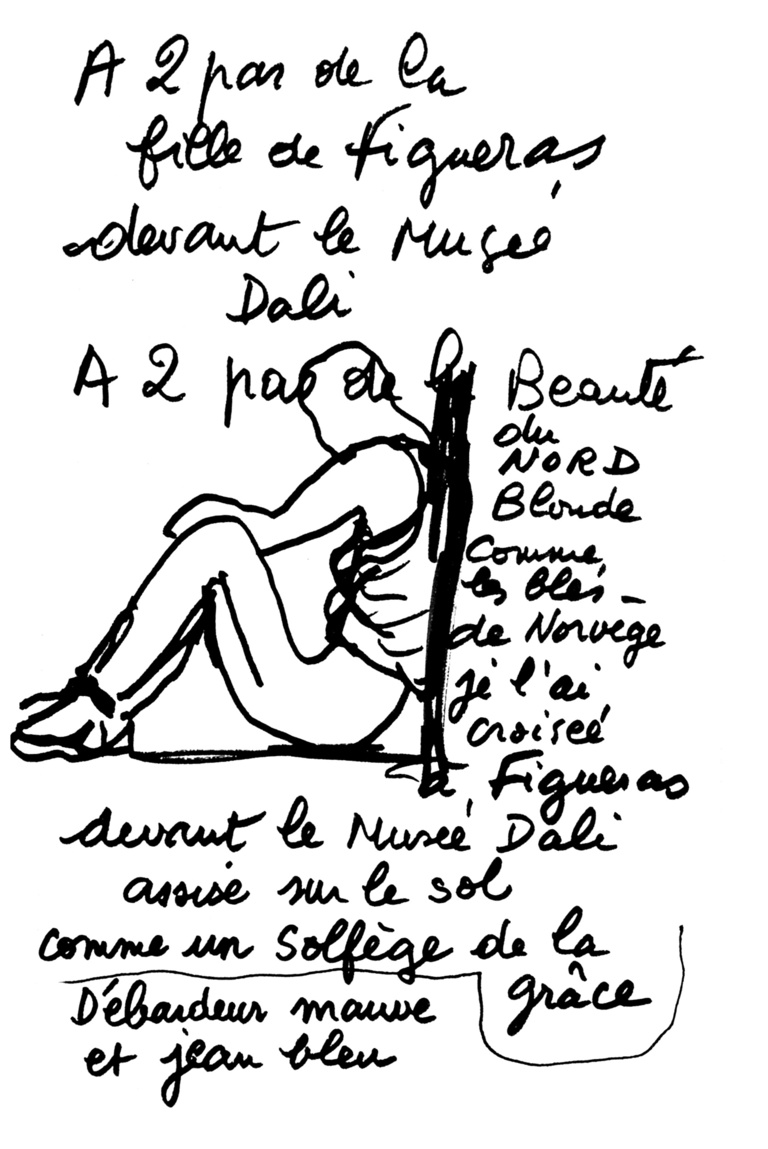 A 2 pas de la
fille de Figueras
devant le Musée
Dali
A 2 pas de la Beauté
du
NORD
Blonde
comme
les blés
de Norvège
je l'ai
croisée
à Figueras
devant le Musée Dali
assise sur le sol
comme un Solfège de la
grâce
Débardeur mauve
et jean bleu